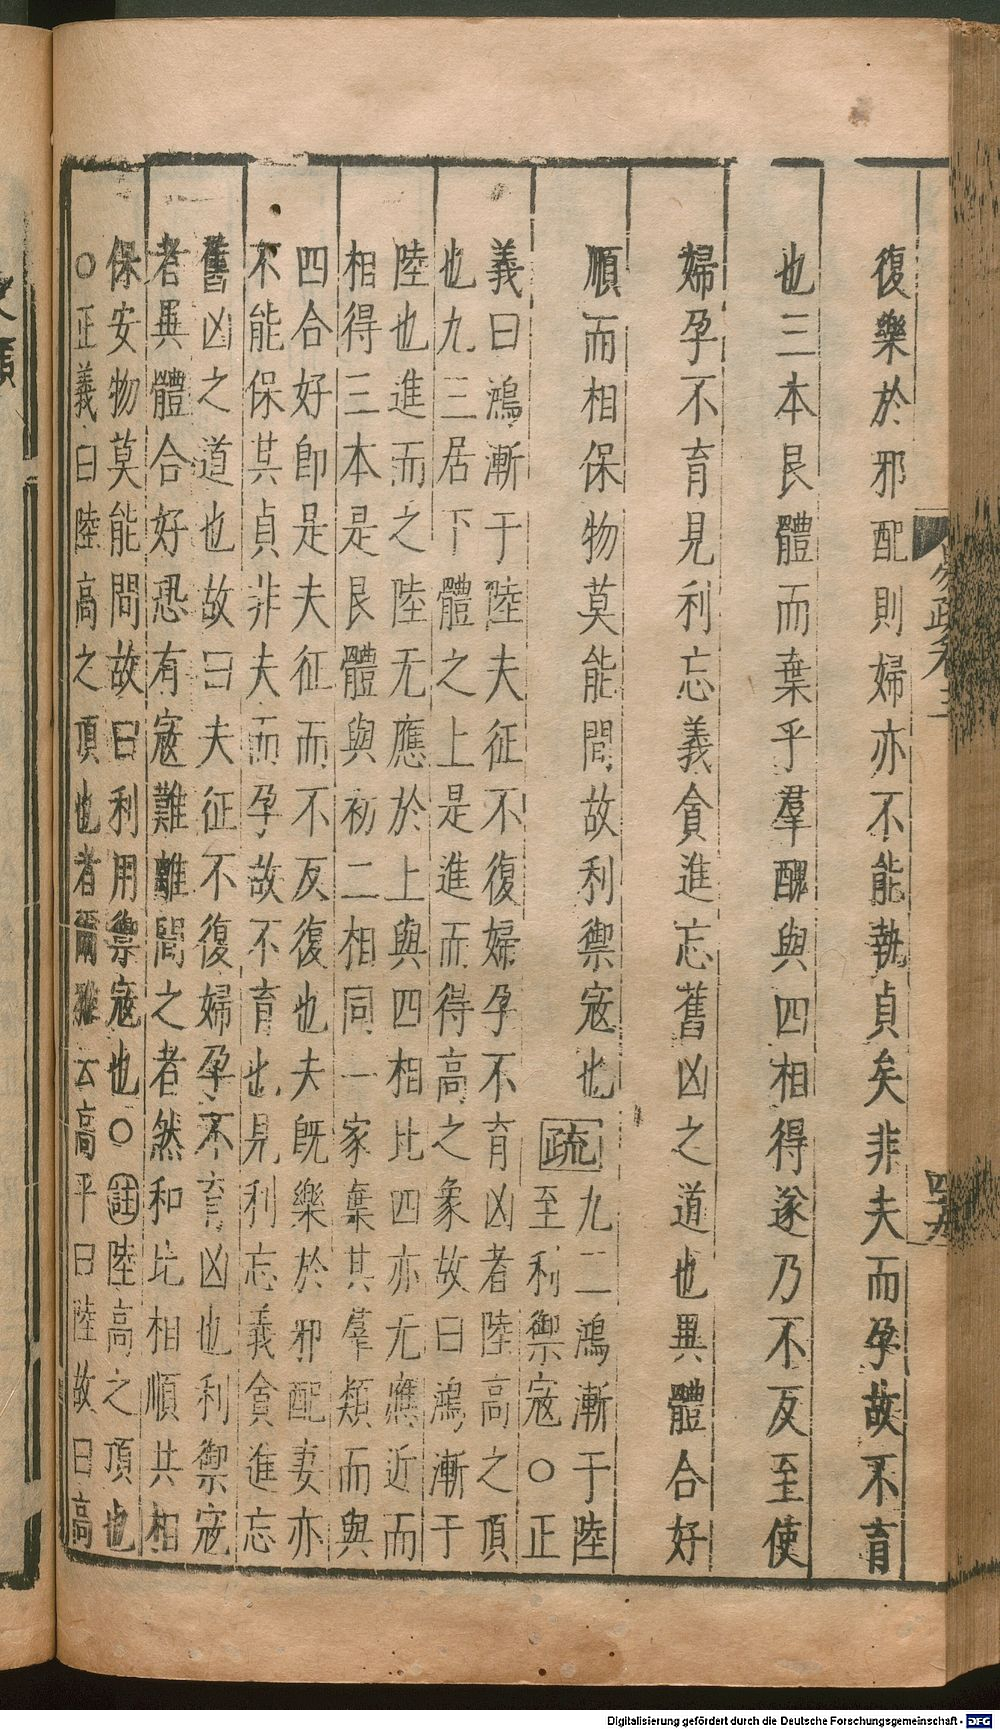 復樂於邪配則婦亦不能執貞矣非夫而孕故不育
也三本艮體而棄乎羣醜與四相得遂乃不反至使
婦孕不育見利忘義貪進忘舊凶之道也異體合好
順而相保物莫能間故利禦寇也
疏
九二鴻漸于陸
至利禦寇○正
義曰鴻漸于陸夫征不復婦孕不育凶者陸高之頂
也九三居下體之上是進而得高之象故曰鴻漸于
陸也進而之陸无應於上與四相比四亦无應近而
相得三本是艮體與初二相同一家棄其羣類而與
四合好即是夫征而不反復也夫既樂於邪配妻亦
不能保其貞非夫而孕故不育也見利忘義貪進忘
舊凶之道也故曰夫征不復婦孕不育凶也利禦寇
者異體合好恐有寇難離間之者然和比相順共相
保安物莫能間故曰利用禦寇也○註陸高之頂也
○正義曰陸高之頂也者爾雅云高平曰陸故曰高
四十九
Digitalisierung gefördert durch die Deutsche Forschungsgemeinschaft - DFG